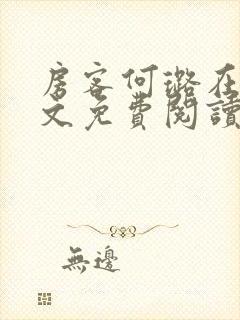 房客何璐在
文免費閱讀
無邊